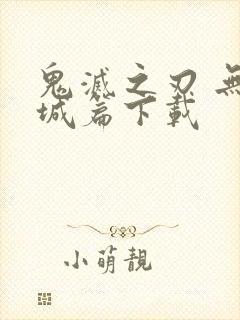 鬼滅之刃 無
城篇下載
小萌靚